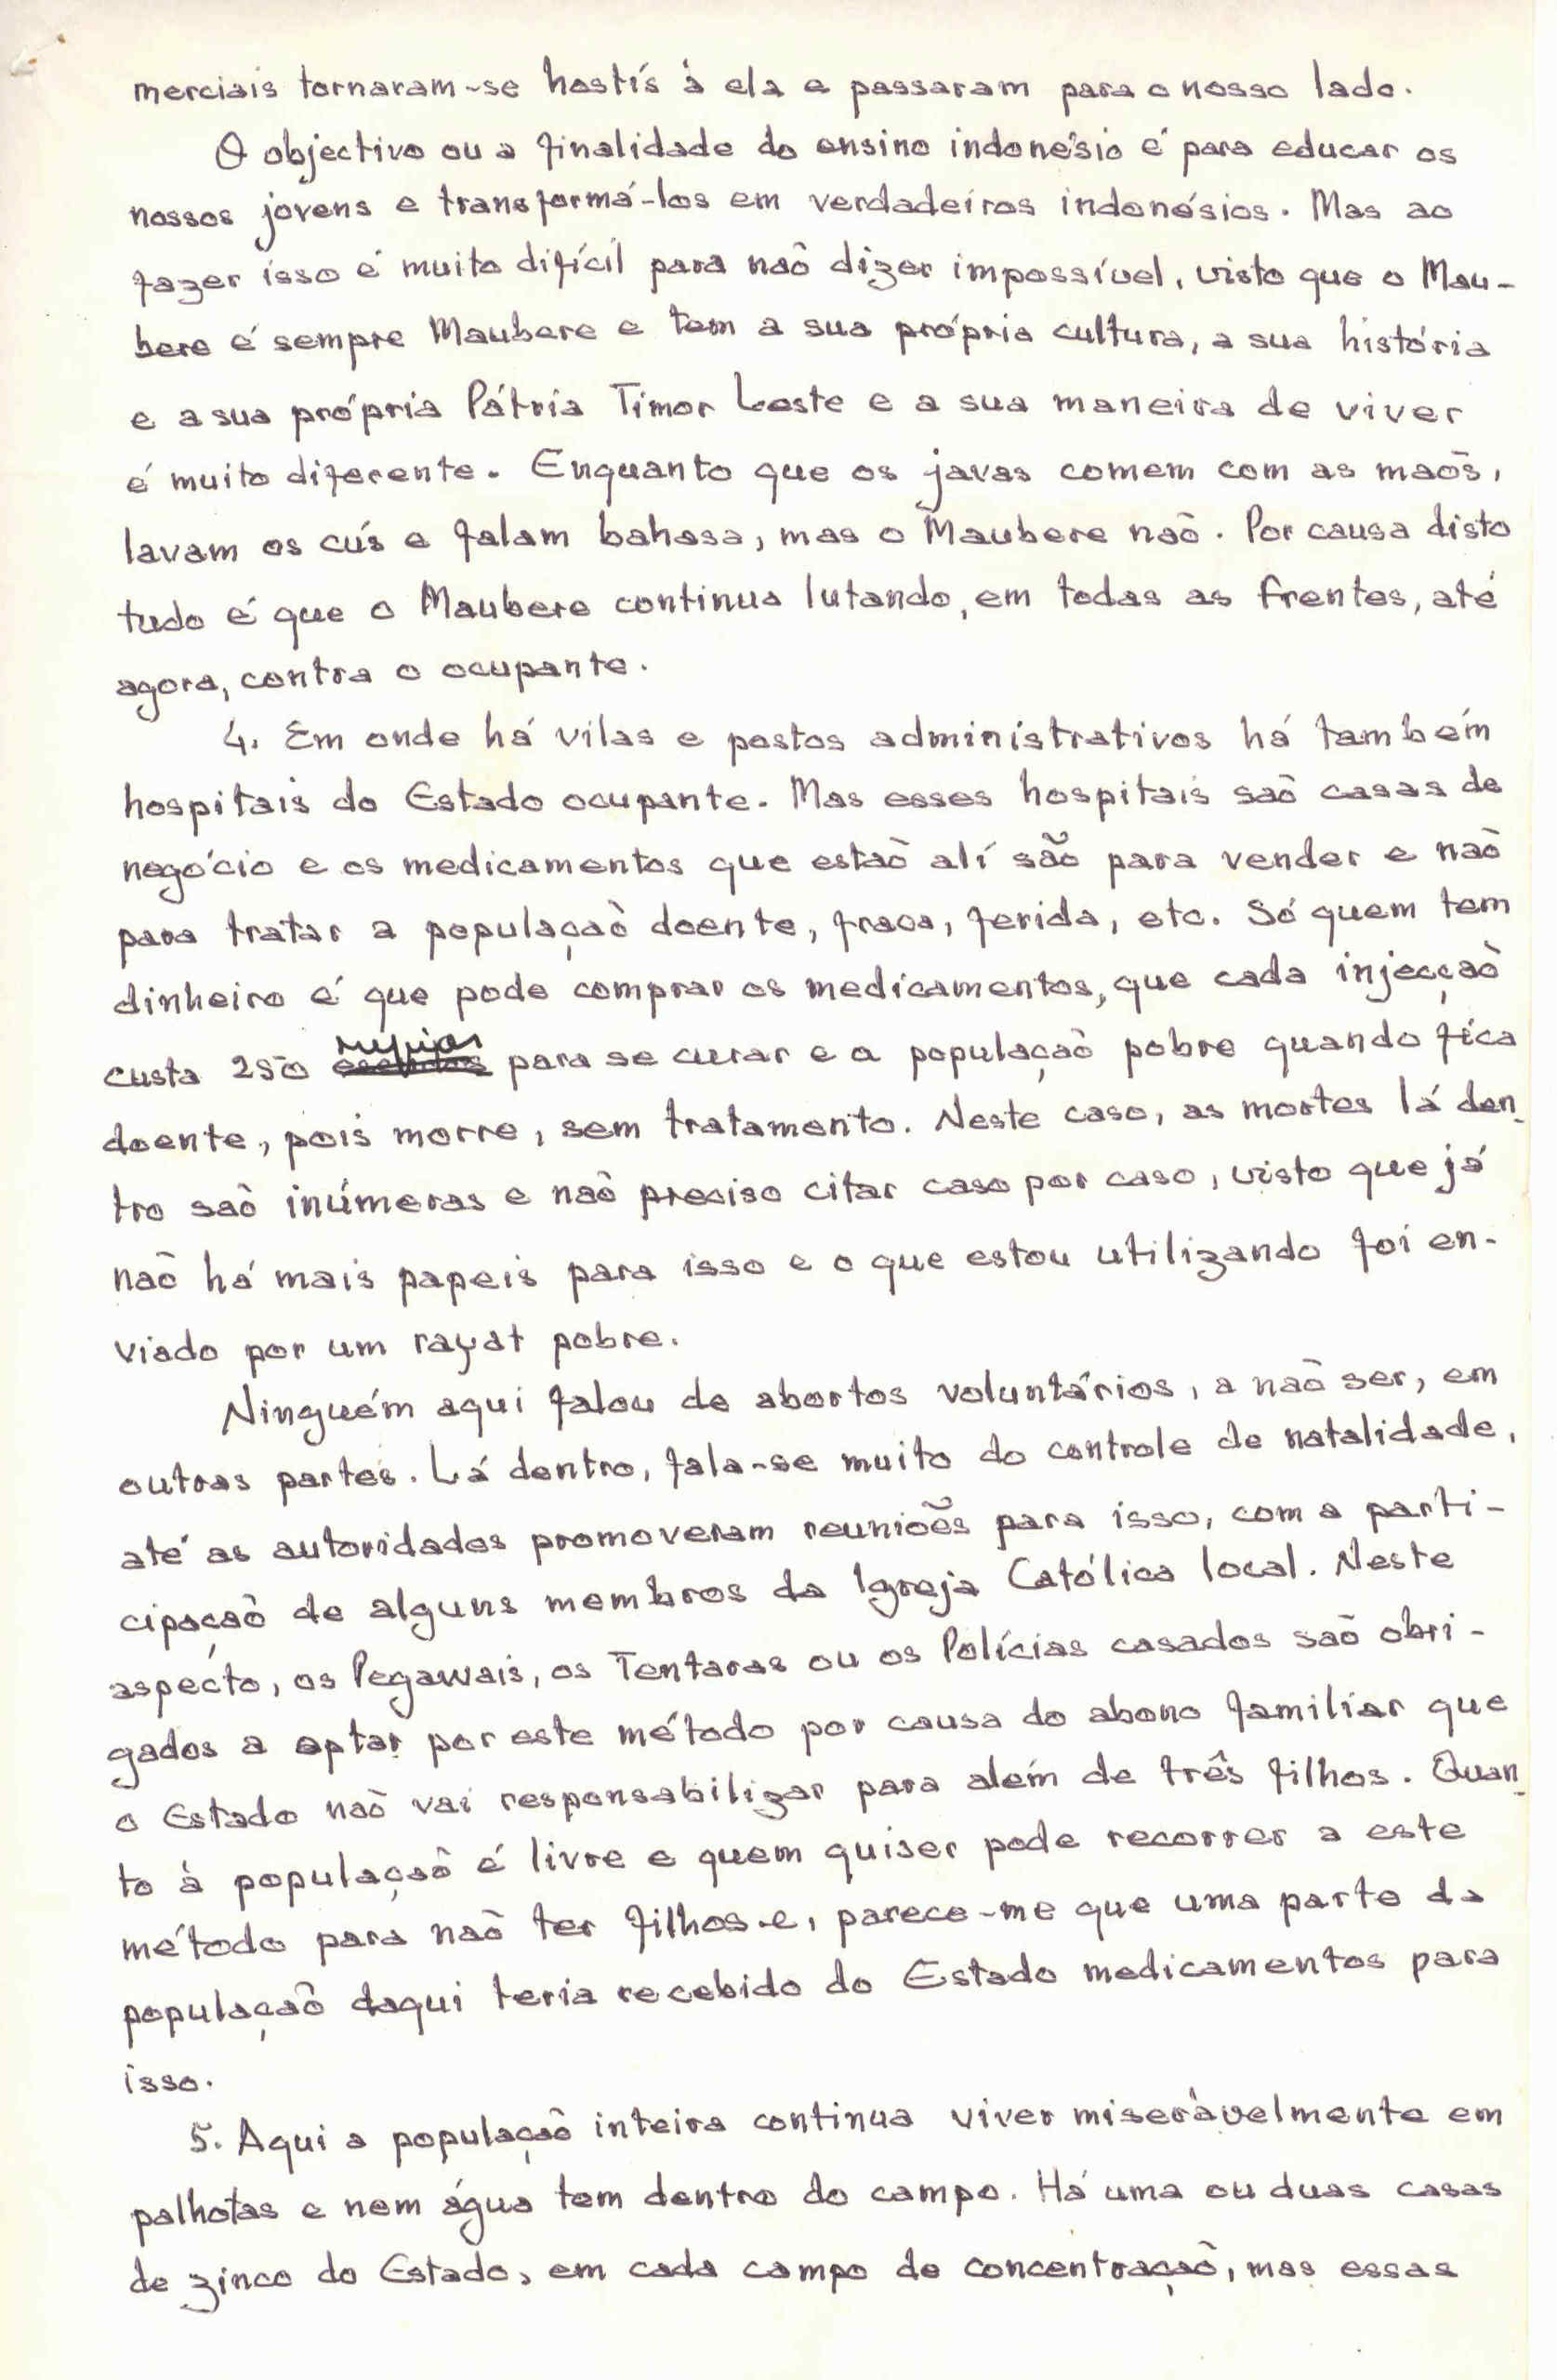 merciais tornaram-se hostís à ela e passaram para o nosso lado.
O objectivo ou a finalidade do ensino indonésio é para educar os
nossos jovens e transformá-los em verdadeiros indonésios. Mas ao
fazer isso é muito difícil para naõ dizer impossível, visto que o Mau-
bere é sempre Maubere e tem a sua própria cultura, a sua história
e a sua própria Pátria Timor Leste e a sua maneira de viver
é muito diferente. Enquanto que os javas comem com as maõs,
lavam os cús e falam bahasa, mas o Maubere naõ. Por causa disto
tudo é que o Maubere continua lutando, em todas as frentes, até
agora, contra o ocupante.
4. Em onde há vilas e postos administrativos há também
hospitais do Estado ocupante. Mas esses hospitais saõ casas de
negócio e os medicamentos que estaõ alí são para vender e naõ
para tratar a populaçaõ doente, fraca, ferida, etc. Só quem tem
dinheiro é que pode comprar os medicamentos, que cada injecçaõ
custa 250 escudos rupias para se curar e a populaçaõ pobre quando fica
doente, pois morre, sem tratamento. Neste caso, as mortes lá den-
tro saõ inúmeras e naõ preciso citar caso por caso, visto que já
naõ há mais papeis para isso e o que estou utilizando foi en-
viado por um rayat pobre.
Ninguém aqui falou de abortos voluntários, a naõ ser, em
outras partes. Lá dentro, fala-se muito do controle de natalidade,
até as autoridades promoveram reuniões para isso, com a parti-
cipaçaõ de alguns membros da Igreja Católica local. Neste
aspecto, os Pegawais, os Tentaras ou os Polícias casados saõ obri-
gados a optar por este método por causa do abono familiar que
o Estado naõ vai responsabilizar para além de três filhos. Quan-
to à populaçaõ é livre e quem quiser pode recorrer a este
método para naõ ter filhos e, parece-me que uma parte da
populaçaõ daqui teria recebido do Estado medicamentos para
isso.
5. Aqui a populaçaõ inteira continua viver miseràvelmente em
palhotas e nem água tem dentro do campo. Há uma ou duas casas
de zinco do Estado, em cada campo de concentraçaõ, mas essas